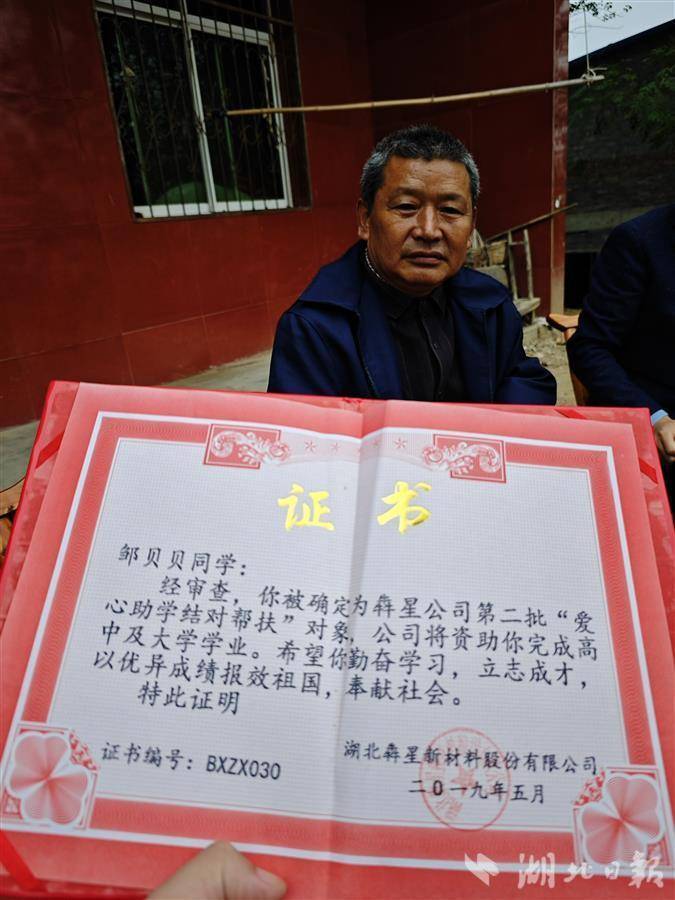 证书
邹贝贝同学：
经审查，你被确定为犇星公司第二批“爱
心助学结对帮扶”对象，公司将资助你完成高
中及大学学业。希望你勤奋学习，立志成才，
以优异成绩报效祖国，奉献社会。
特此证明
证书编号：BXZX030
湖北犇星新材料股份有限公司
二0一九年五月
湖北日报